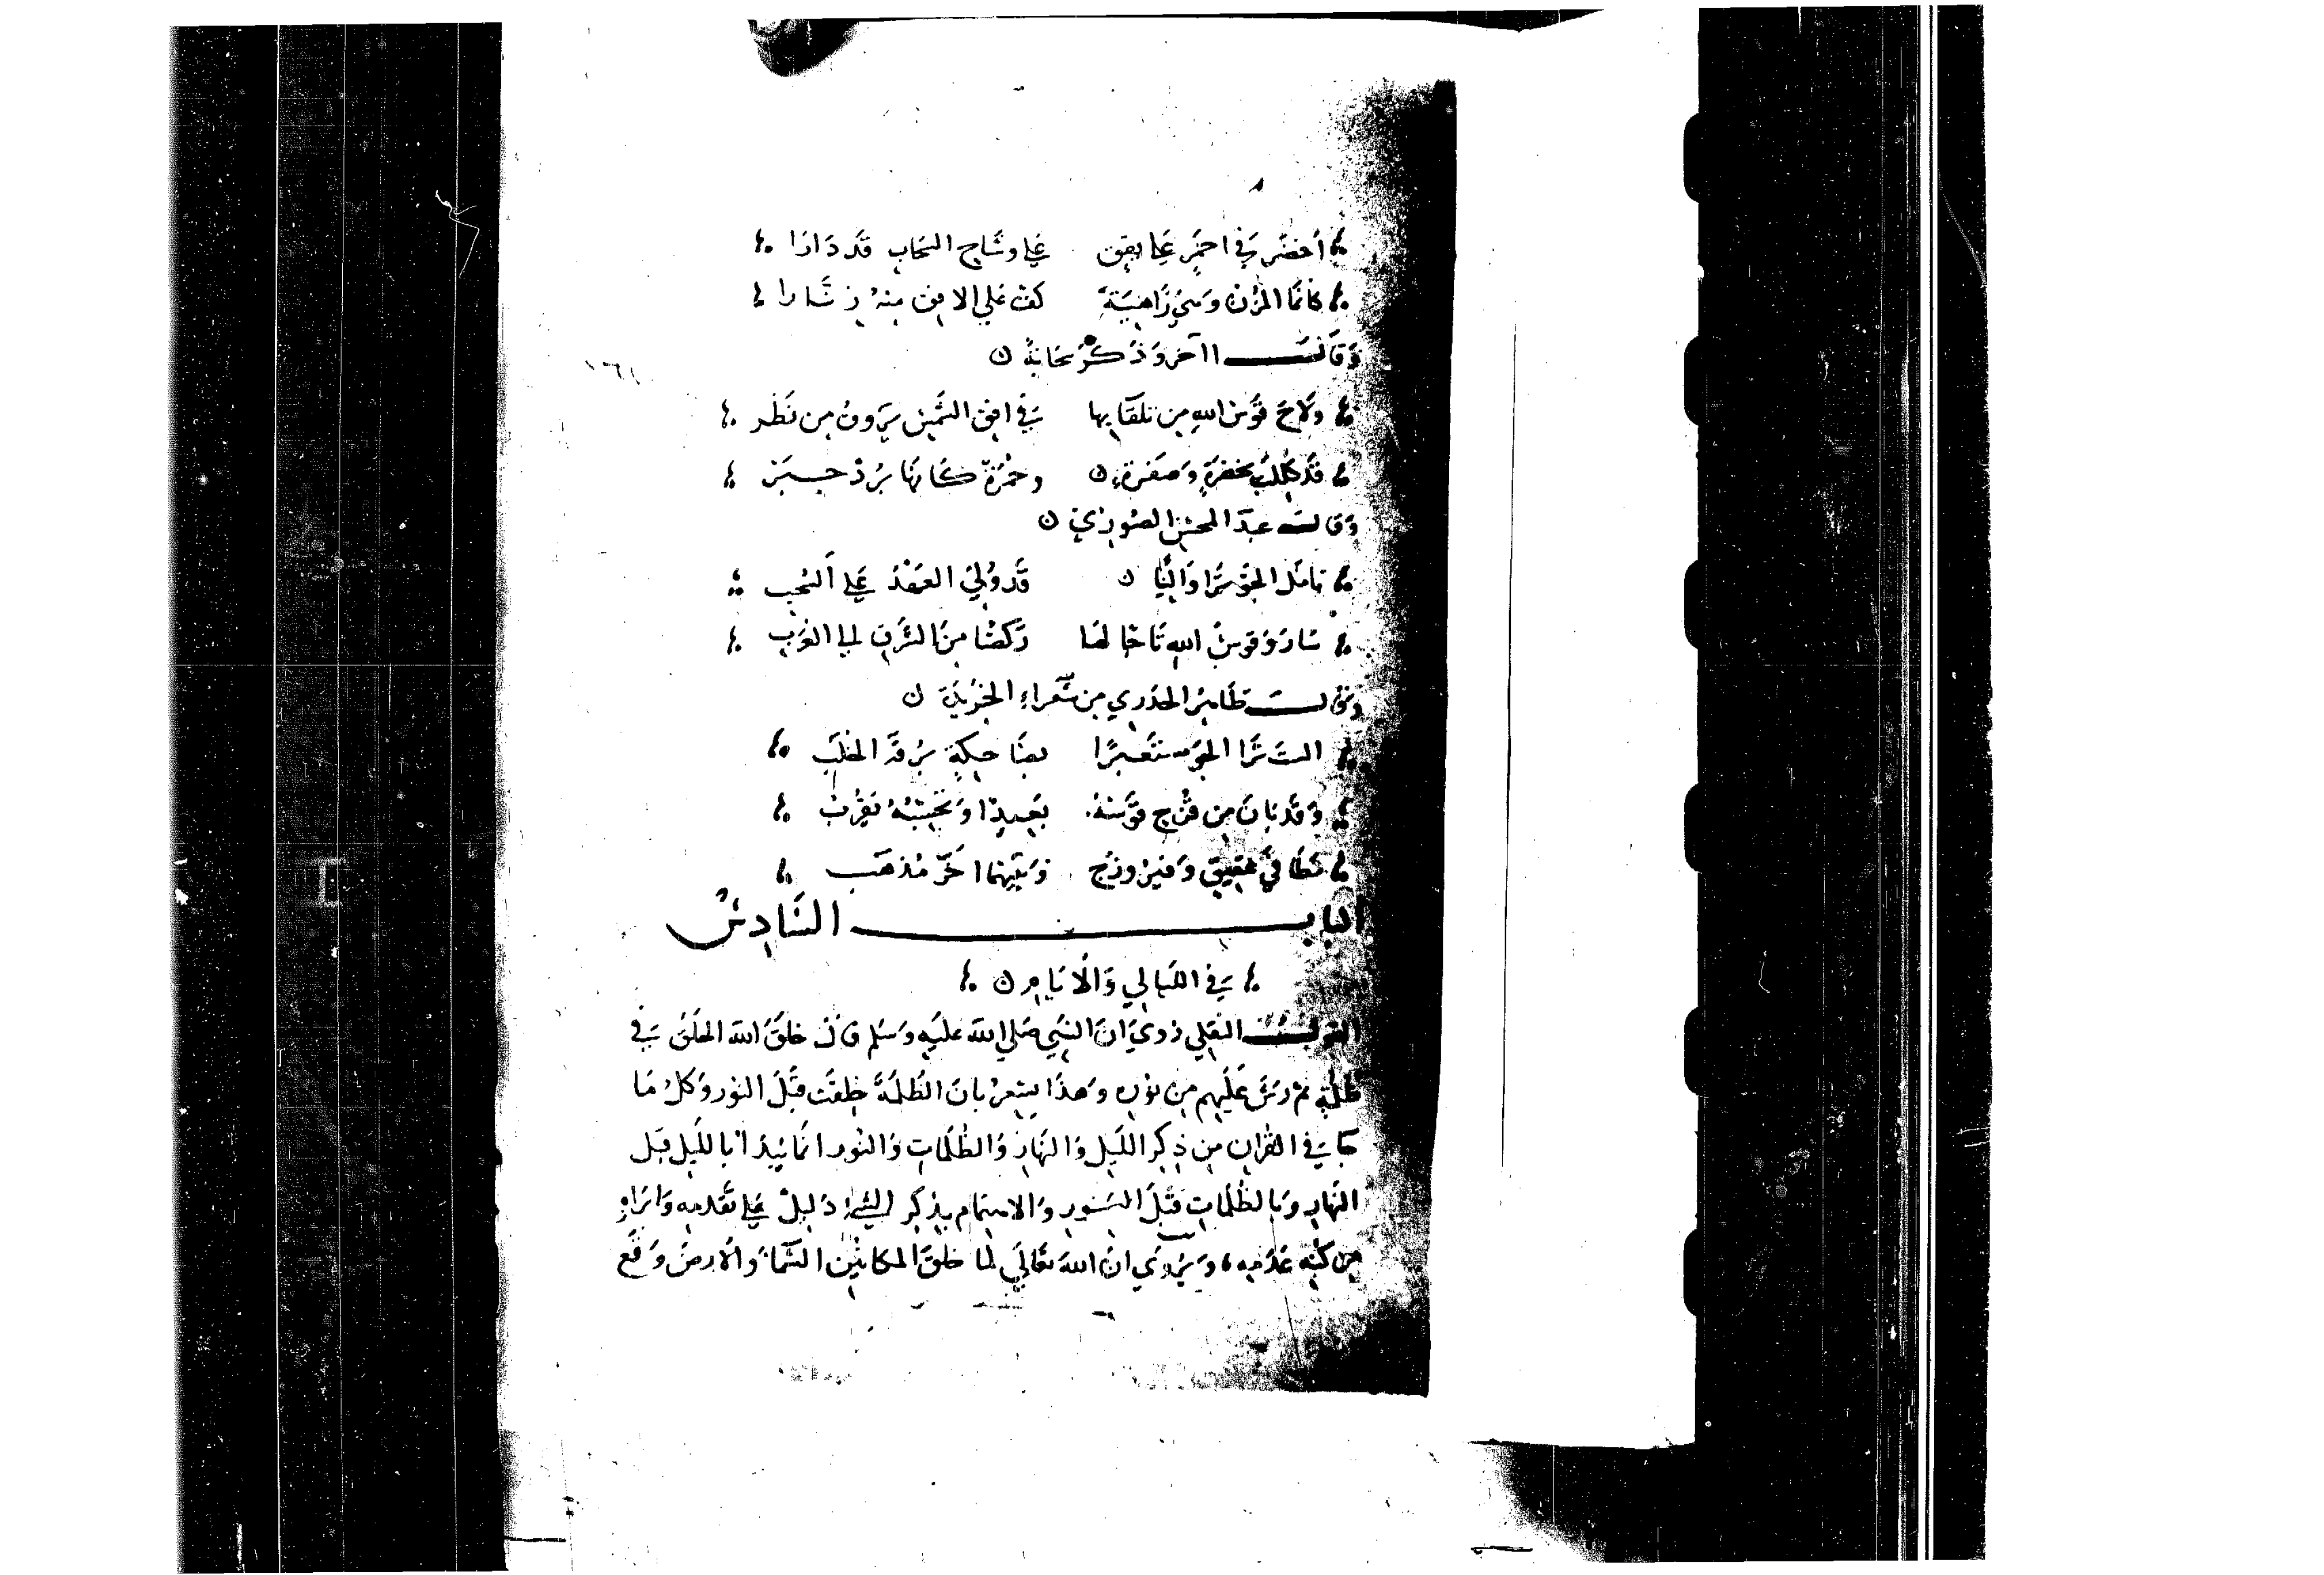 أخضر في احمر على يقق على وشاح السحاب قد دارا
كأنما المزن وهي راهبة على الافق منه زنارا
وقال آخر وذكر سحابة
ولاح قوس الله من تلقايها في افق الشمس يروق من نظر
قد كللت بخضرة وصفرة وحمرة كانها برد حبر
وقالت عبد المحسن الصوري
تامل الجو ترا واليا قد ولي العهد على السحب
سار وقوس الله تاجا لها ركضا من الشرق الى الغرب
وقال ظاهر من شعراء
الست ترا الجو مستعبرا يضاحكه برقه الخلب
وقد بان من قزح قوسه بعيدا وتحسبه يقرب
كطاقي عقيق وفيروزج وبينهما اخر مذهب
الباب السادس
في الليالي والايام
القول النقلي روي ان النبي صلى الله عليه وسلم قال خلق الله الخلق في
ظلمة ثم رش عليهم من نوره وهذا يشعر بان الظلمة خلقت قبل النور وكل ما
جا في القران من ذكر الليل والنهار والظلمات والنور انما يبدا بالليل قبل
النهار وبالظلمات قبل النور والاهتمام بذكر الشيء دليل على تقدمه وابرازه
من عدمه ويروي ان الله تعالي لما خلق المكانين السماء والارض وقع
١٦١